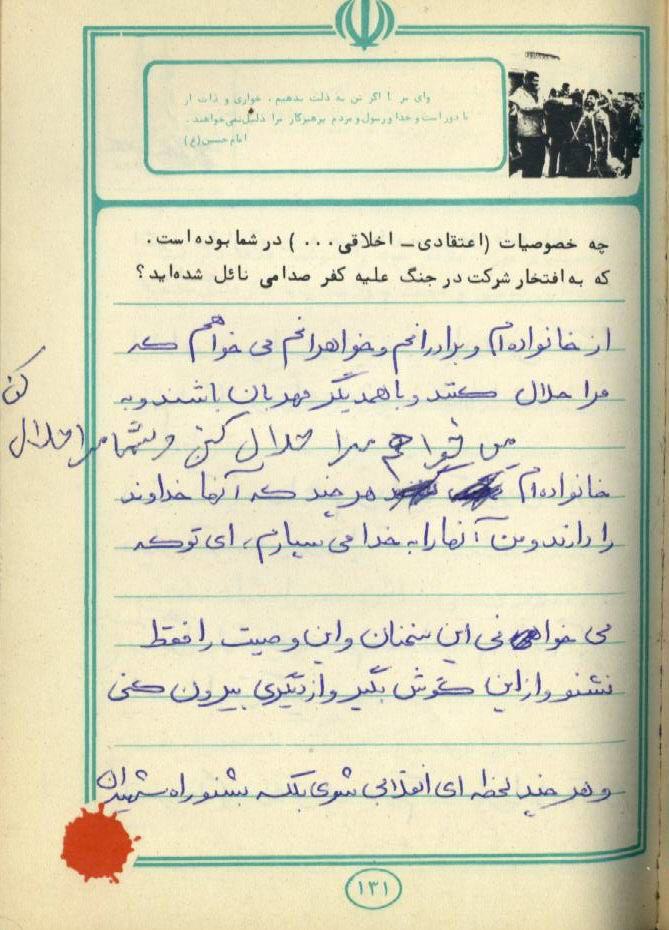 وای بر ما اگر تن به ذلت بدهیم، خواری و ذلت از
ما دور است و خدا و رسول و مردم پرهیزکار مرا ذلیل نمی‌خواهند.
امام حسین (ع)
چه خصوصیات (اعتقادی ـ اخلاقی ...) در شما بوده است.
که به افتخار شرکت در جنگ علیه کفر صدامی نائل شده‌اید؟
از خانواده‌ام و برادرانم و خواهرانم می خواهم که
مرا حلال کنند و با همدیگر مهربان باشند و به
می خواهم مرا حلال کنی و شما مرا حلال کن
خانواده‌ام هر چند که آنها خداوند
را دارند و من آنها را به خدا می سپارم، ای تو که
می خواهی این سخنان و این وصیت را فقط
نشنو و از این گوش بگیر و از دیگری بیرون کنی
و هر چند لحظه ای انقلابی شوی بلکه بشنو راه شهیدان
۱۳۱